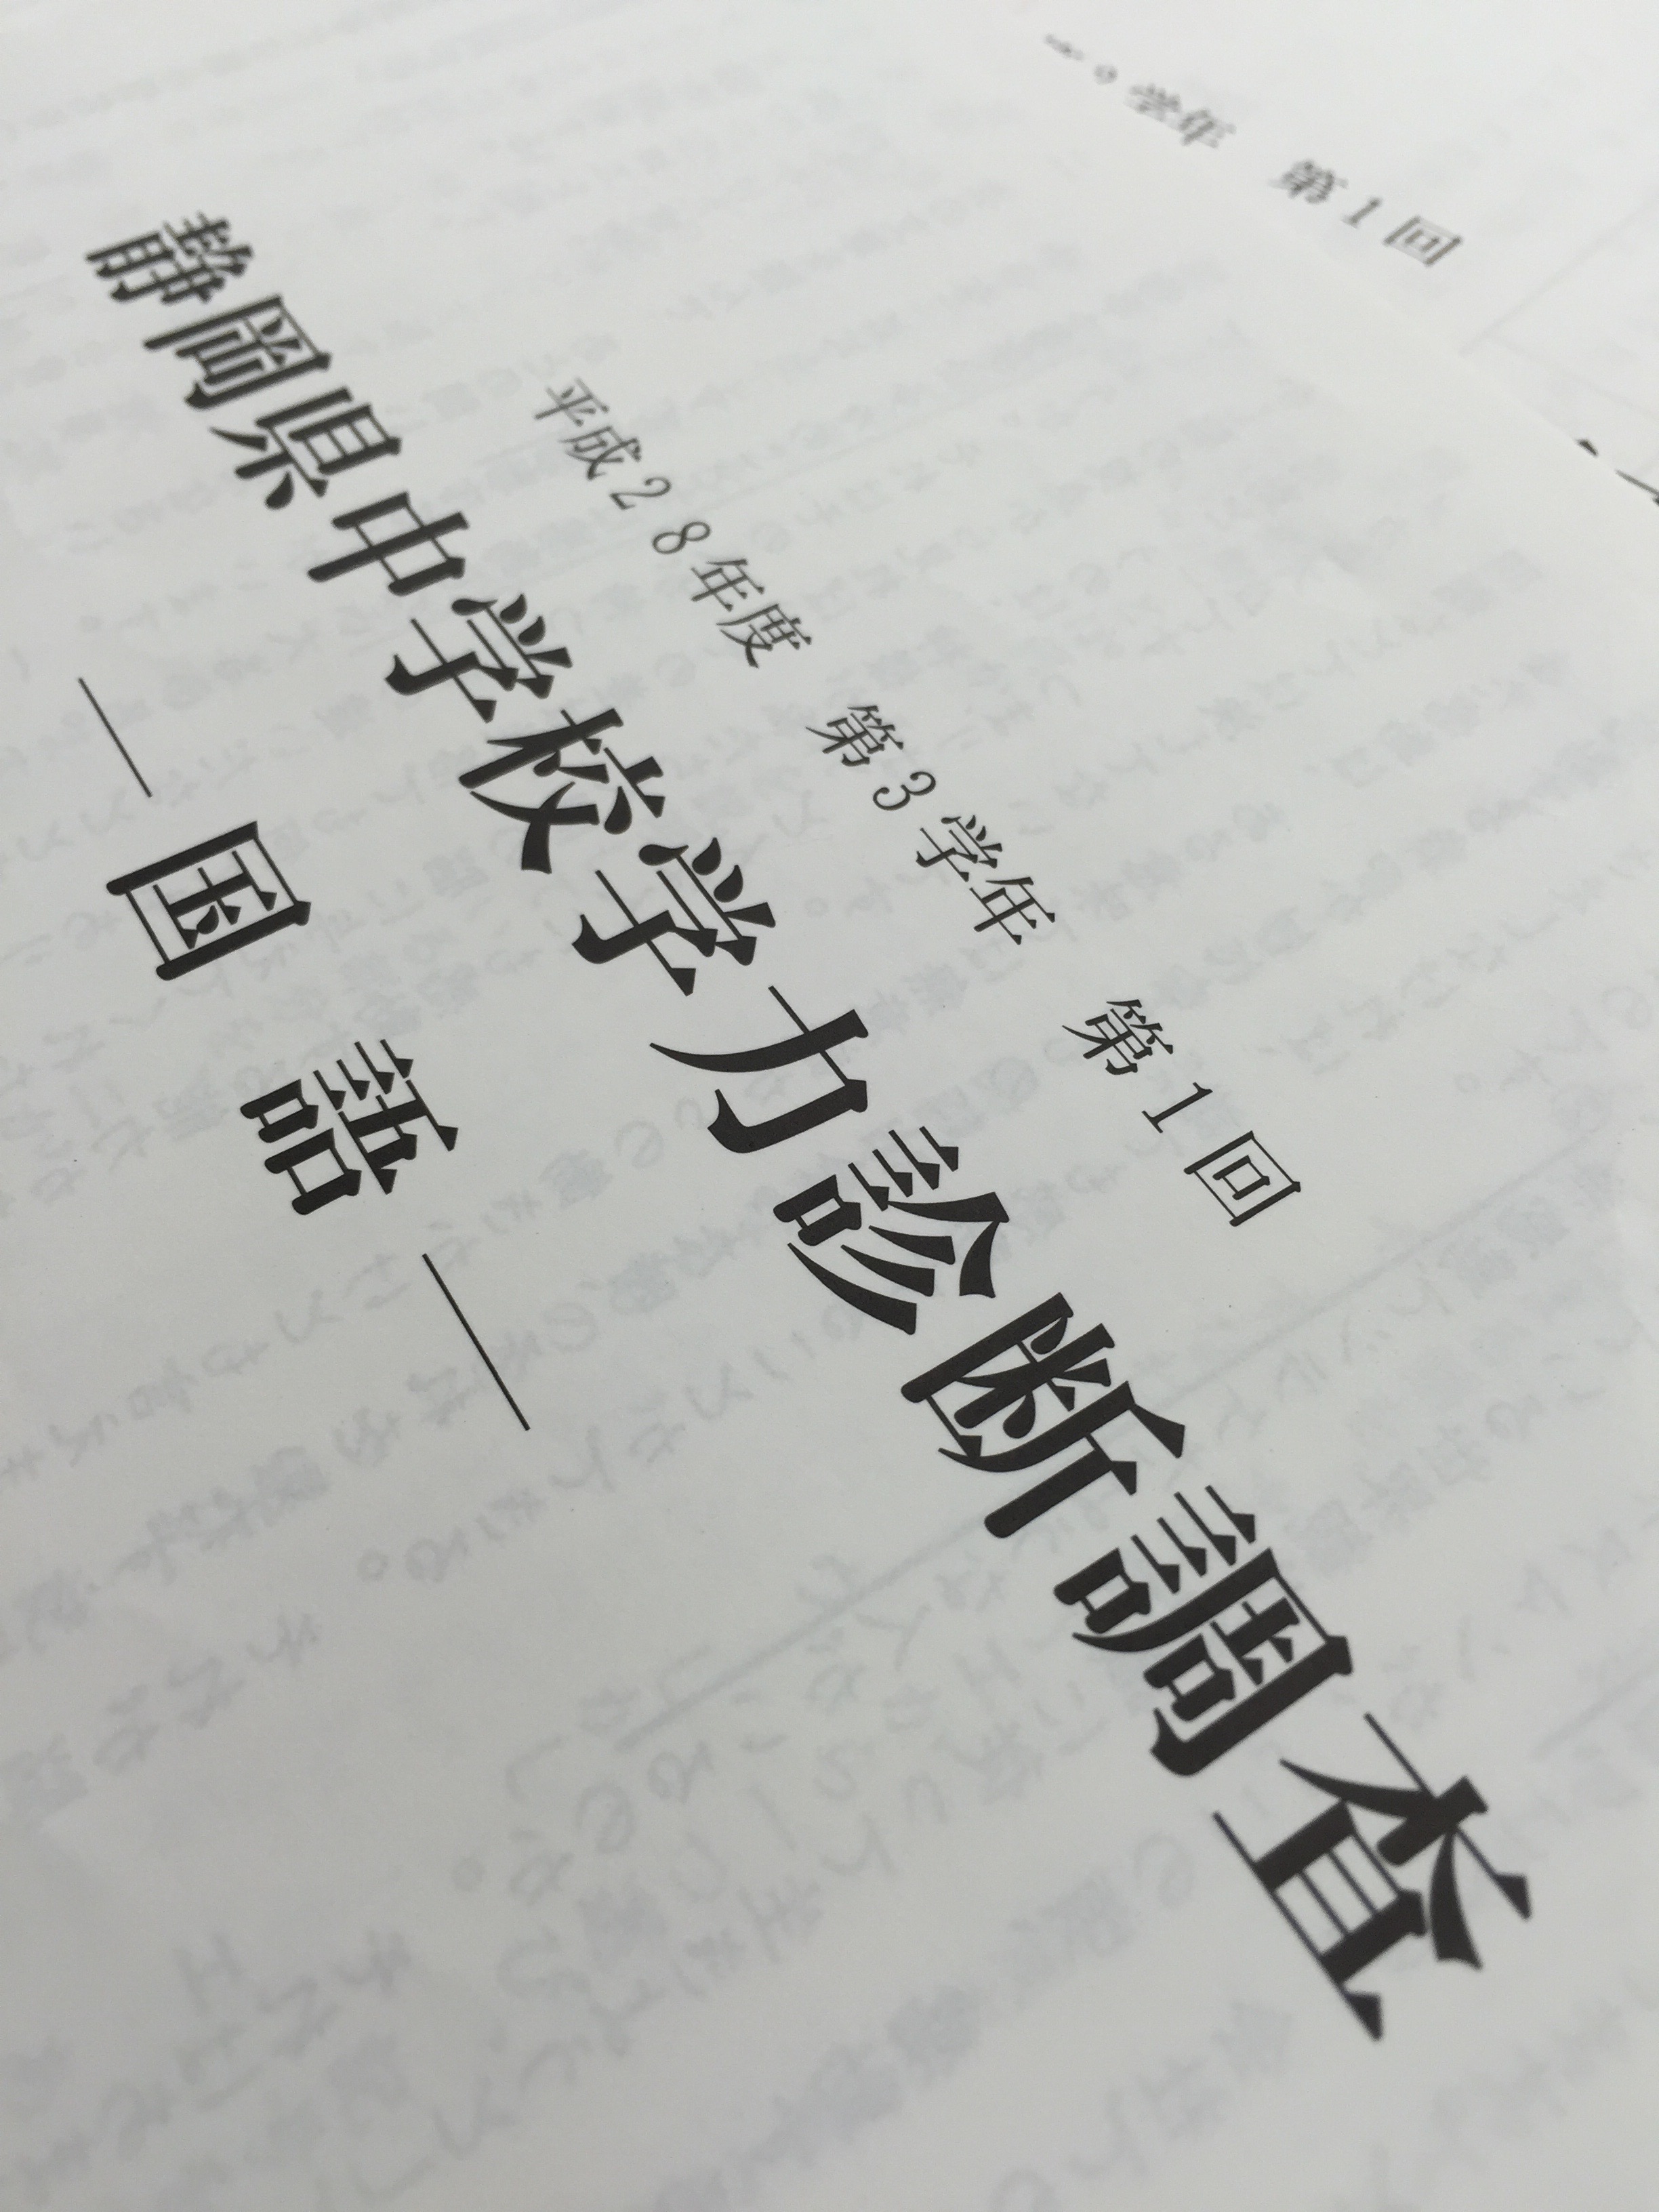 平成28年度 第3学年 第1回
静岡県中学校学力診断調査
― 国 語 ―
学年 第1回